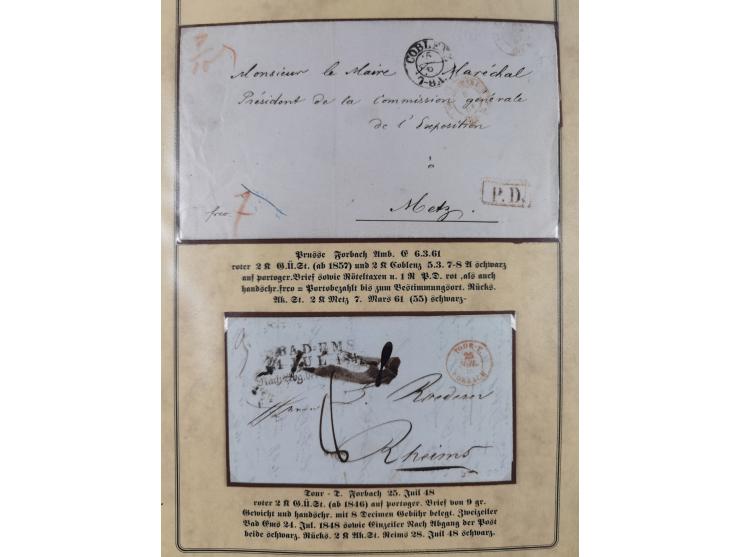 COBLENZ
Monsieur le Maire Maréchal
Président de la Commission générale
de l'Exposition
à
Metz.
P.D.
freo.
7
Prusse Forbach Amb. E 6.3.61
roter 2 K G.Ü.St. (ab 1857) und 2 K Coblenz 5.3. 7-8 A schwarz
auf portoger.Brief sowie Röteltaxen u. 1 R P.D. rot ,als auch
handschr.frco = Portobezahlt bis zum Bestimmungsort. Rücks.
Ak. St. 2 K Metz 7. Mars 61 (55) schwarz-
BAD-EMS
24 JUL 184
Nach Abg. der
TOUR-T.
25
FORBACH
Rheims
Tour - T. Forbach 25. Juil 48
roter 2 K G.Ü.St. (ab 1846) auf portoger. Brief von 9 gr.
Gewicht und handschr. mit 8 Decimen Gebühr belegt. Zweizeiler
Bad Ems 24. Jul. 1848 sowie Einzeiler Nach Abgang der Post
beide schwarz. Rücks. 2 K Ak.St. Reims 28. Juil 48 schwarz.